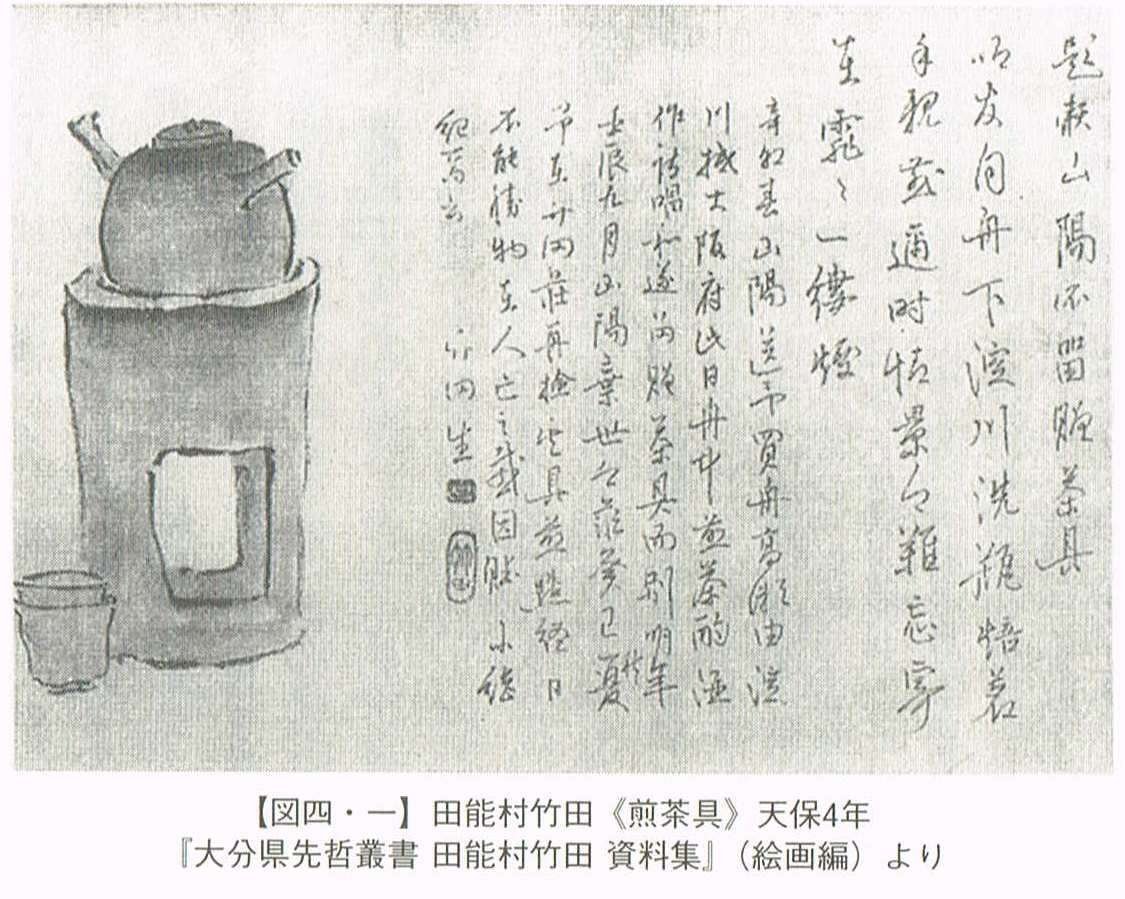 題頼山陽所留贈茶具
明友同舟下澱川洗瓶焙茗
手親煎適時情景今難忘寄
在霏々一縷煙
辛卯春山陽送予買舟高瀬由澱
川抵大阪府此日舟中煎茶酌酒
作詩唱和遂留贈茶具而別明年
壬辰九月山陽棄世今茲癸巳夏
予在 再検此具煎 日
不能勝物在人亡之感因賦小絶
紀 云
竹田生
【図四・一】田能村竹田《煎茶具》天保4年
『大分県先哲叢書 田能村竹田 資料集』（絵画編）より